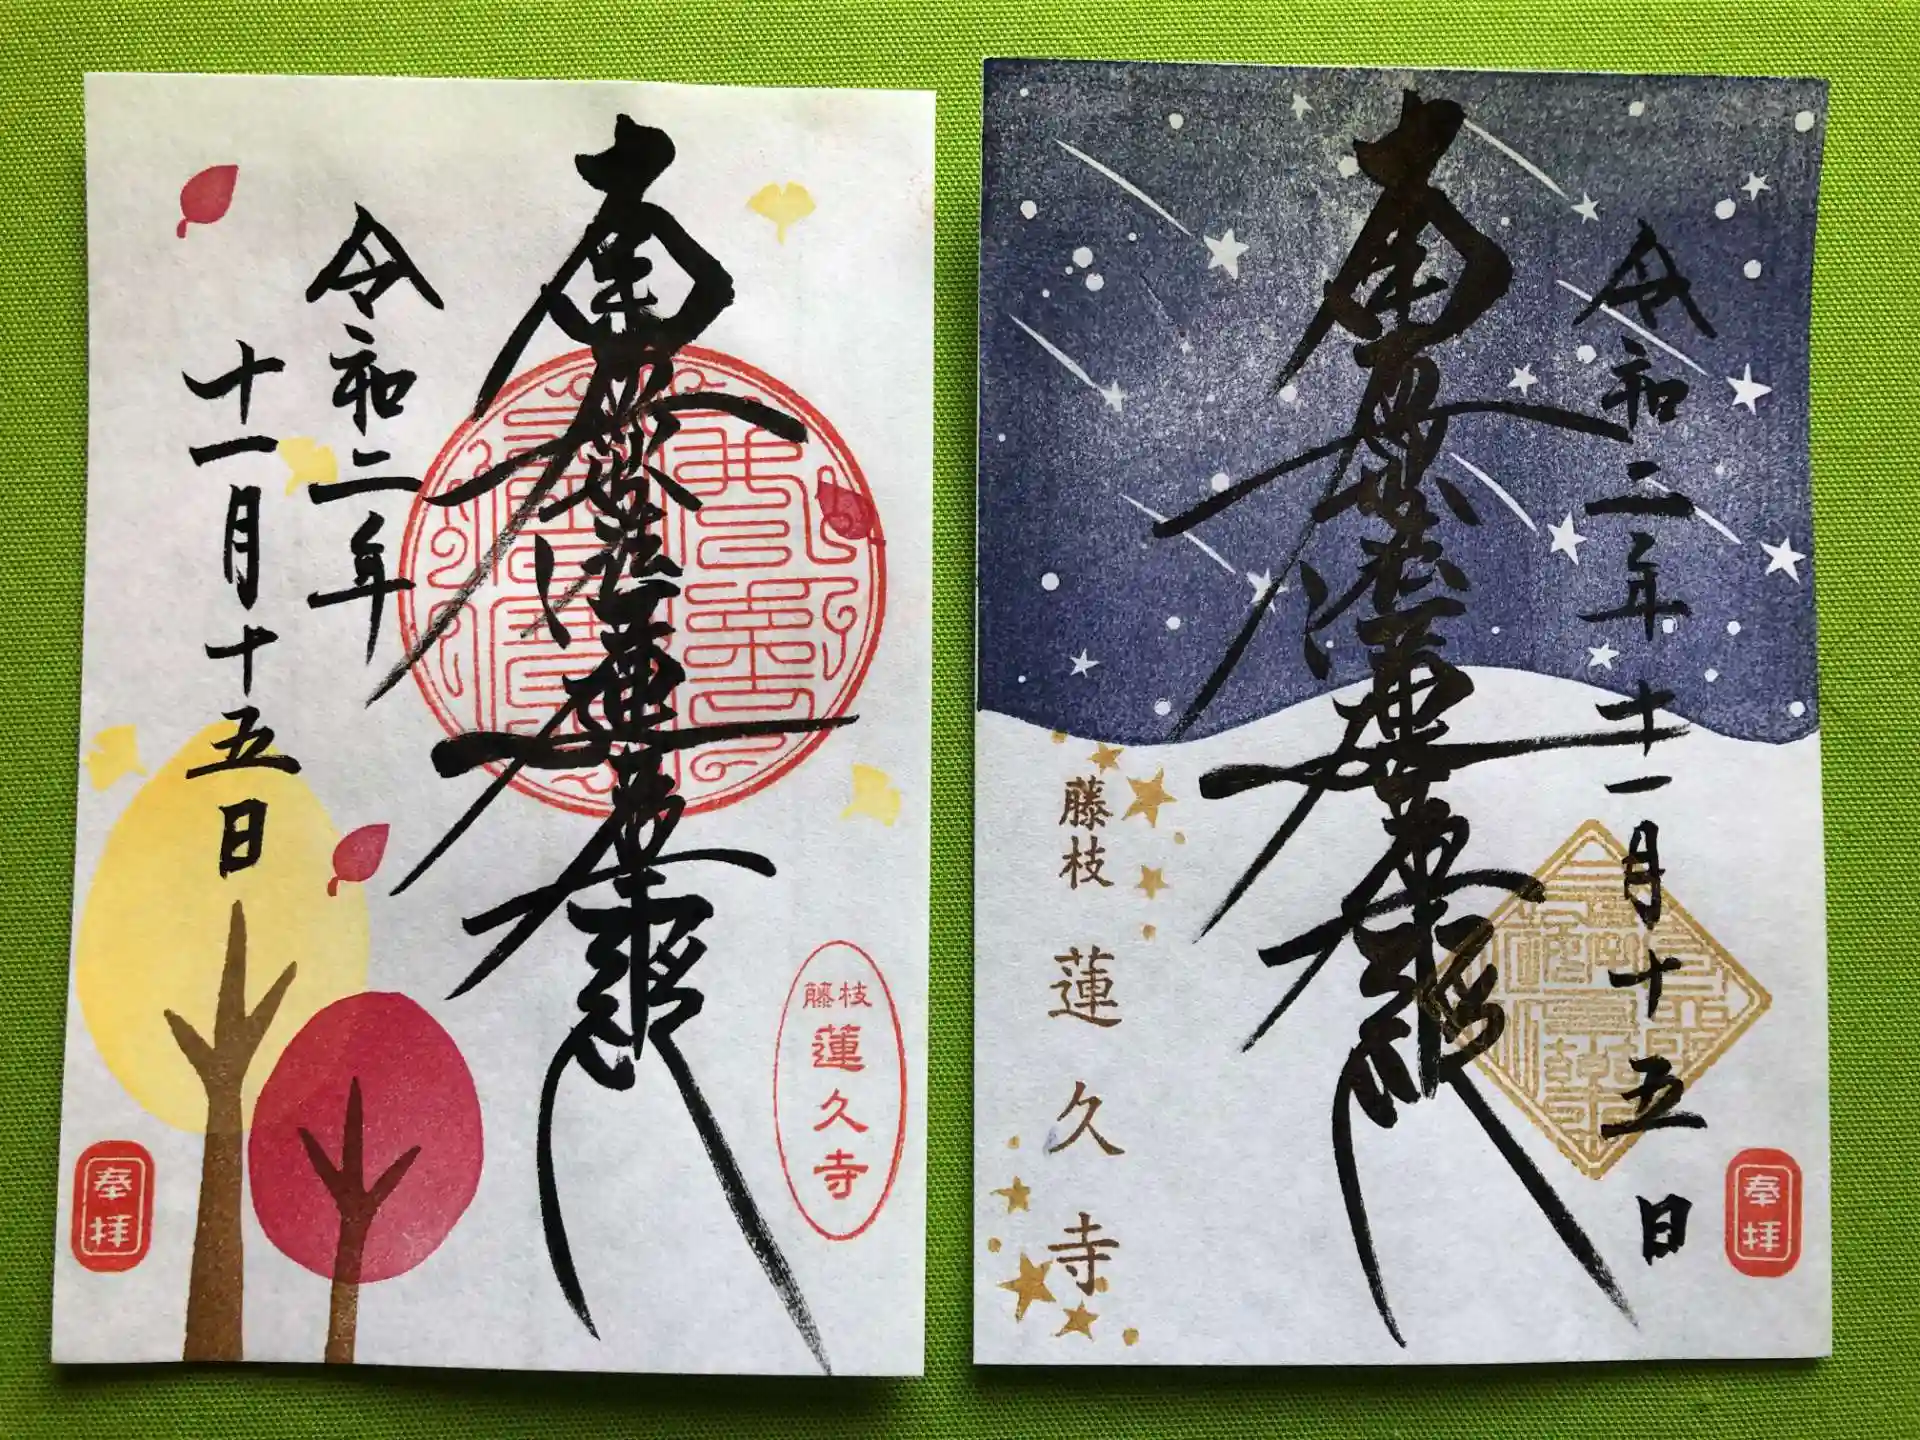 南無妙法蓮華経
令和二年
十一月十五日
藤枝
蓮久寺
奉拝
令和二年十一月十五日
南無妙法蓮華経
藤枝
蓮久寺
奉拝